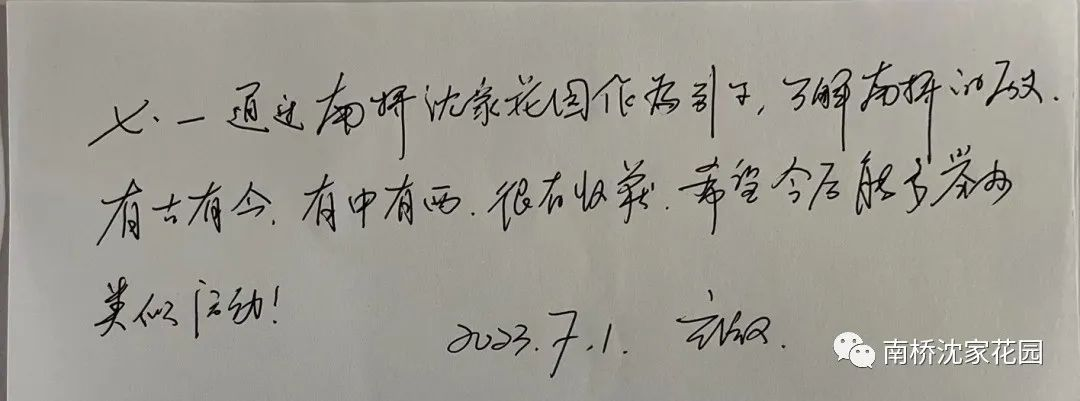 七·一通过南桥沈家花园作为引子,了解南桥的历史.
有古有今,有中有西.很有收获.希望今后能多举办
类似活动!
2023.7.1.
南桥沈家花园